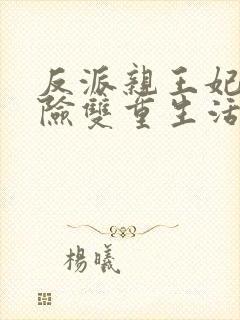 反派親王妃
險雙重生活
楊曦